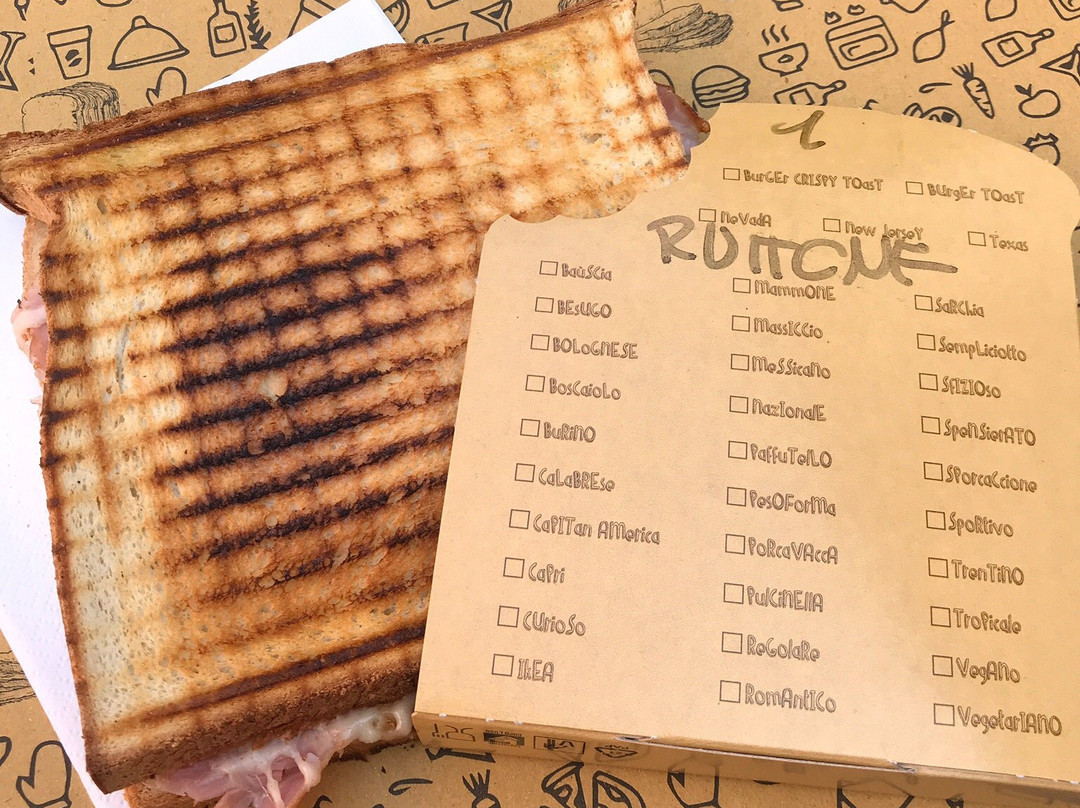 1
BurgEr CRISPY TOasT
BUrgEr TOasT
NeVadA
New JerseY
Texas
RUTTONE
BaùSCia
BEsUGO
BOLOGNESE
BosCaioLo
BuRiNO
CaLaBREse
CaPITan AMerica
CaPri
CUrioSo
IkEA
MammONE
MassICCio
MeSSicaNo
NazIonalE
PaffuTelLO
PesOForMa
PoRcaVAccA
PulCiNEllA
ReGolaRe
RomAntICo
SaRChia
SempLiciotto
SfIZIOso
SpeNSierATO
SPorcaCcione
SpoRtivo
TrenTiNO
TroPicale
VegANo
VegetarIANO